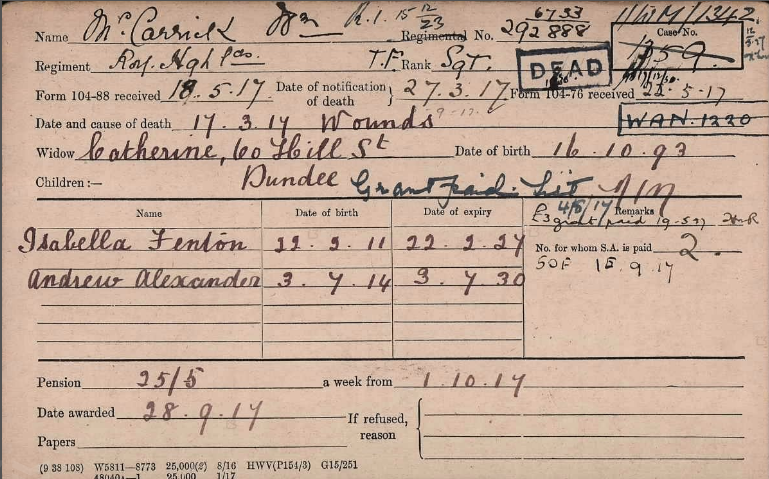 Name Mc Carrick Wm R.I. 15 12/23 Regimental No. 6733 292888 11/WM/1342.
Regiment Roy. Hghlds T.F. Rank Sgt. DEAD Case No. 1359
Form 104-88 received 18.5.17 Date of notification of death } 27.3.17 Form 104-76 received 22.5.17
Date and cause of death 17.3.17 Wounds WAN.1220
Widow Catherine, 60 Hill St Date of birth 16.10.93
Children:— Dundee Grant paid.
Name Date of birth Date of expiry £3 grant paid 19.5.17 4/8/17 Remarks
Isabella Fenton 22.2.11 22.2.27 No. for whom S.A. is paid 2.
Andrew Alexander 3.7.14 3.7.30 SOF 15.9.17
Pension 25/5 a week from 1.10.17
Date awarded 28.9.17 If refused, reason
Papers
(9 38 108) W5811—8773 25,000(2) 8/16 HWV(P154/3) G15/251
48040a—1 25,000 1/17